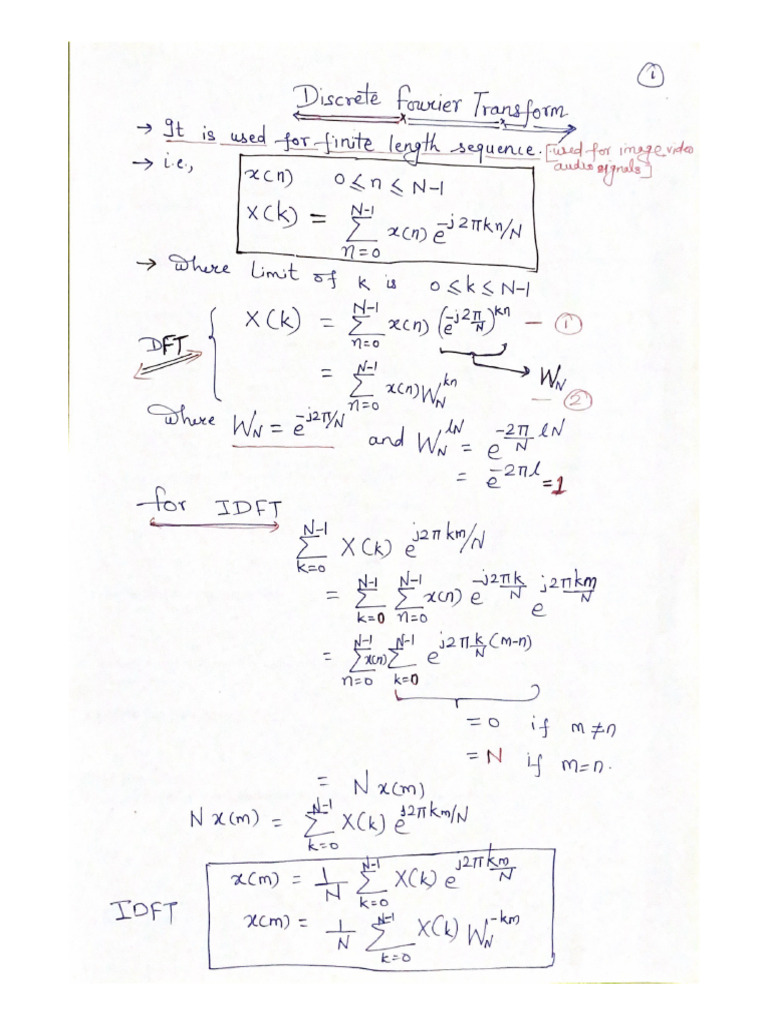 ①
Discrete Fourier Transform
→ It is used for finite length sequence. [used for image, video audio signals]
→ i.e., x(n) 0 ≤ n ≤ N-1
X(k) = ∑_{n=0}^{N-1} x(n) e^{-j2πkn/N}
→ where limit of k is 0 ≤ k ≤ N-1
DFT { X(k) = ∑_{n=0}^{N-1} x(n) (e^{-j2π/N})^{kn} — ①
→ W_N
= ∑_{n=0}^{N-1} x(n) W_N^{kn} — ②
where W_N = e^{-j2π/N} and W_N^{lN} = e^{-2π/N lN}
= e^{-2πl} = 1
for IDFT
∑_{k=0}^{N-1} X(k) e^{j2πkm/N}
= ∑_{k=0}^{N-1} ∑_{n=0}^{N-1} x(n) e^{-j2πk/N} e^{j2πkm/N}
= ∑_{n=0}^{N-1} x(n) ∑_{k=0}^{N-1} e^{j2πk/N (m-n)}
= 0 if m ≠ n
= N if m = n.
= N x(m)
N x(m) = ∑_{k=0}^{N-1} X(k) e^{j2πkm/N}
x(m) = 1/N ∑_{k=0}^{N-1} X(k) e^{j2πkm/N}
IDFT
x(m) = 1/N ∑_{k=0}^{N-1} X(k) W_N^{-km}